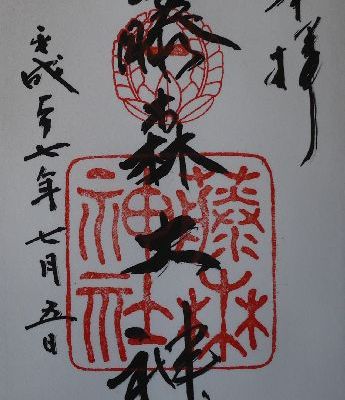 奉拝
藤森大神
藤森
神社
平成二十七年七月五日